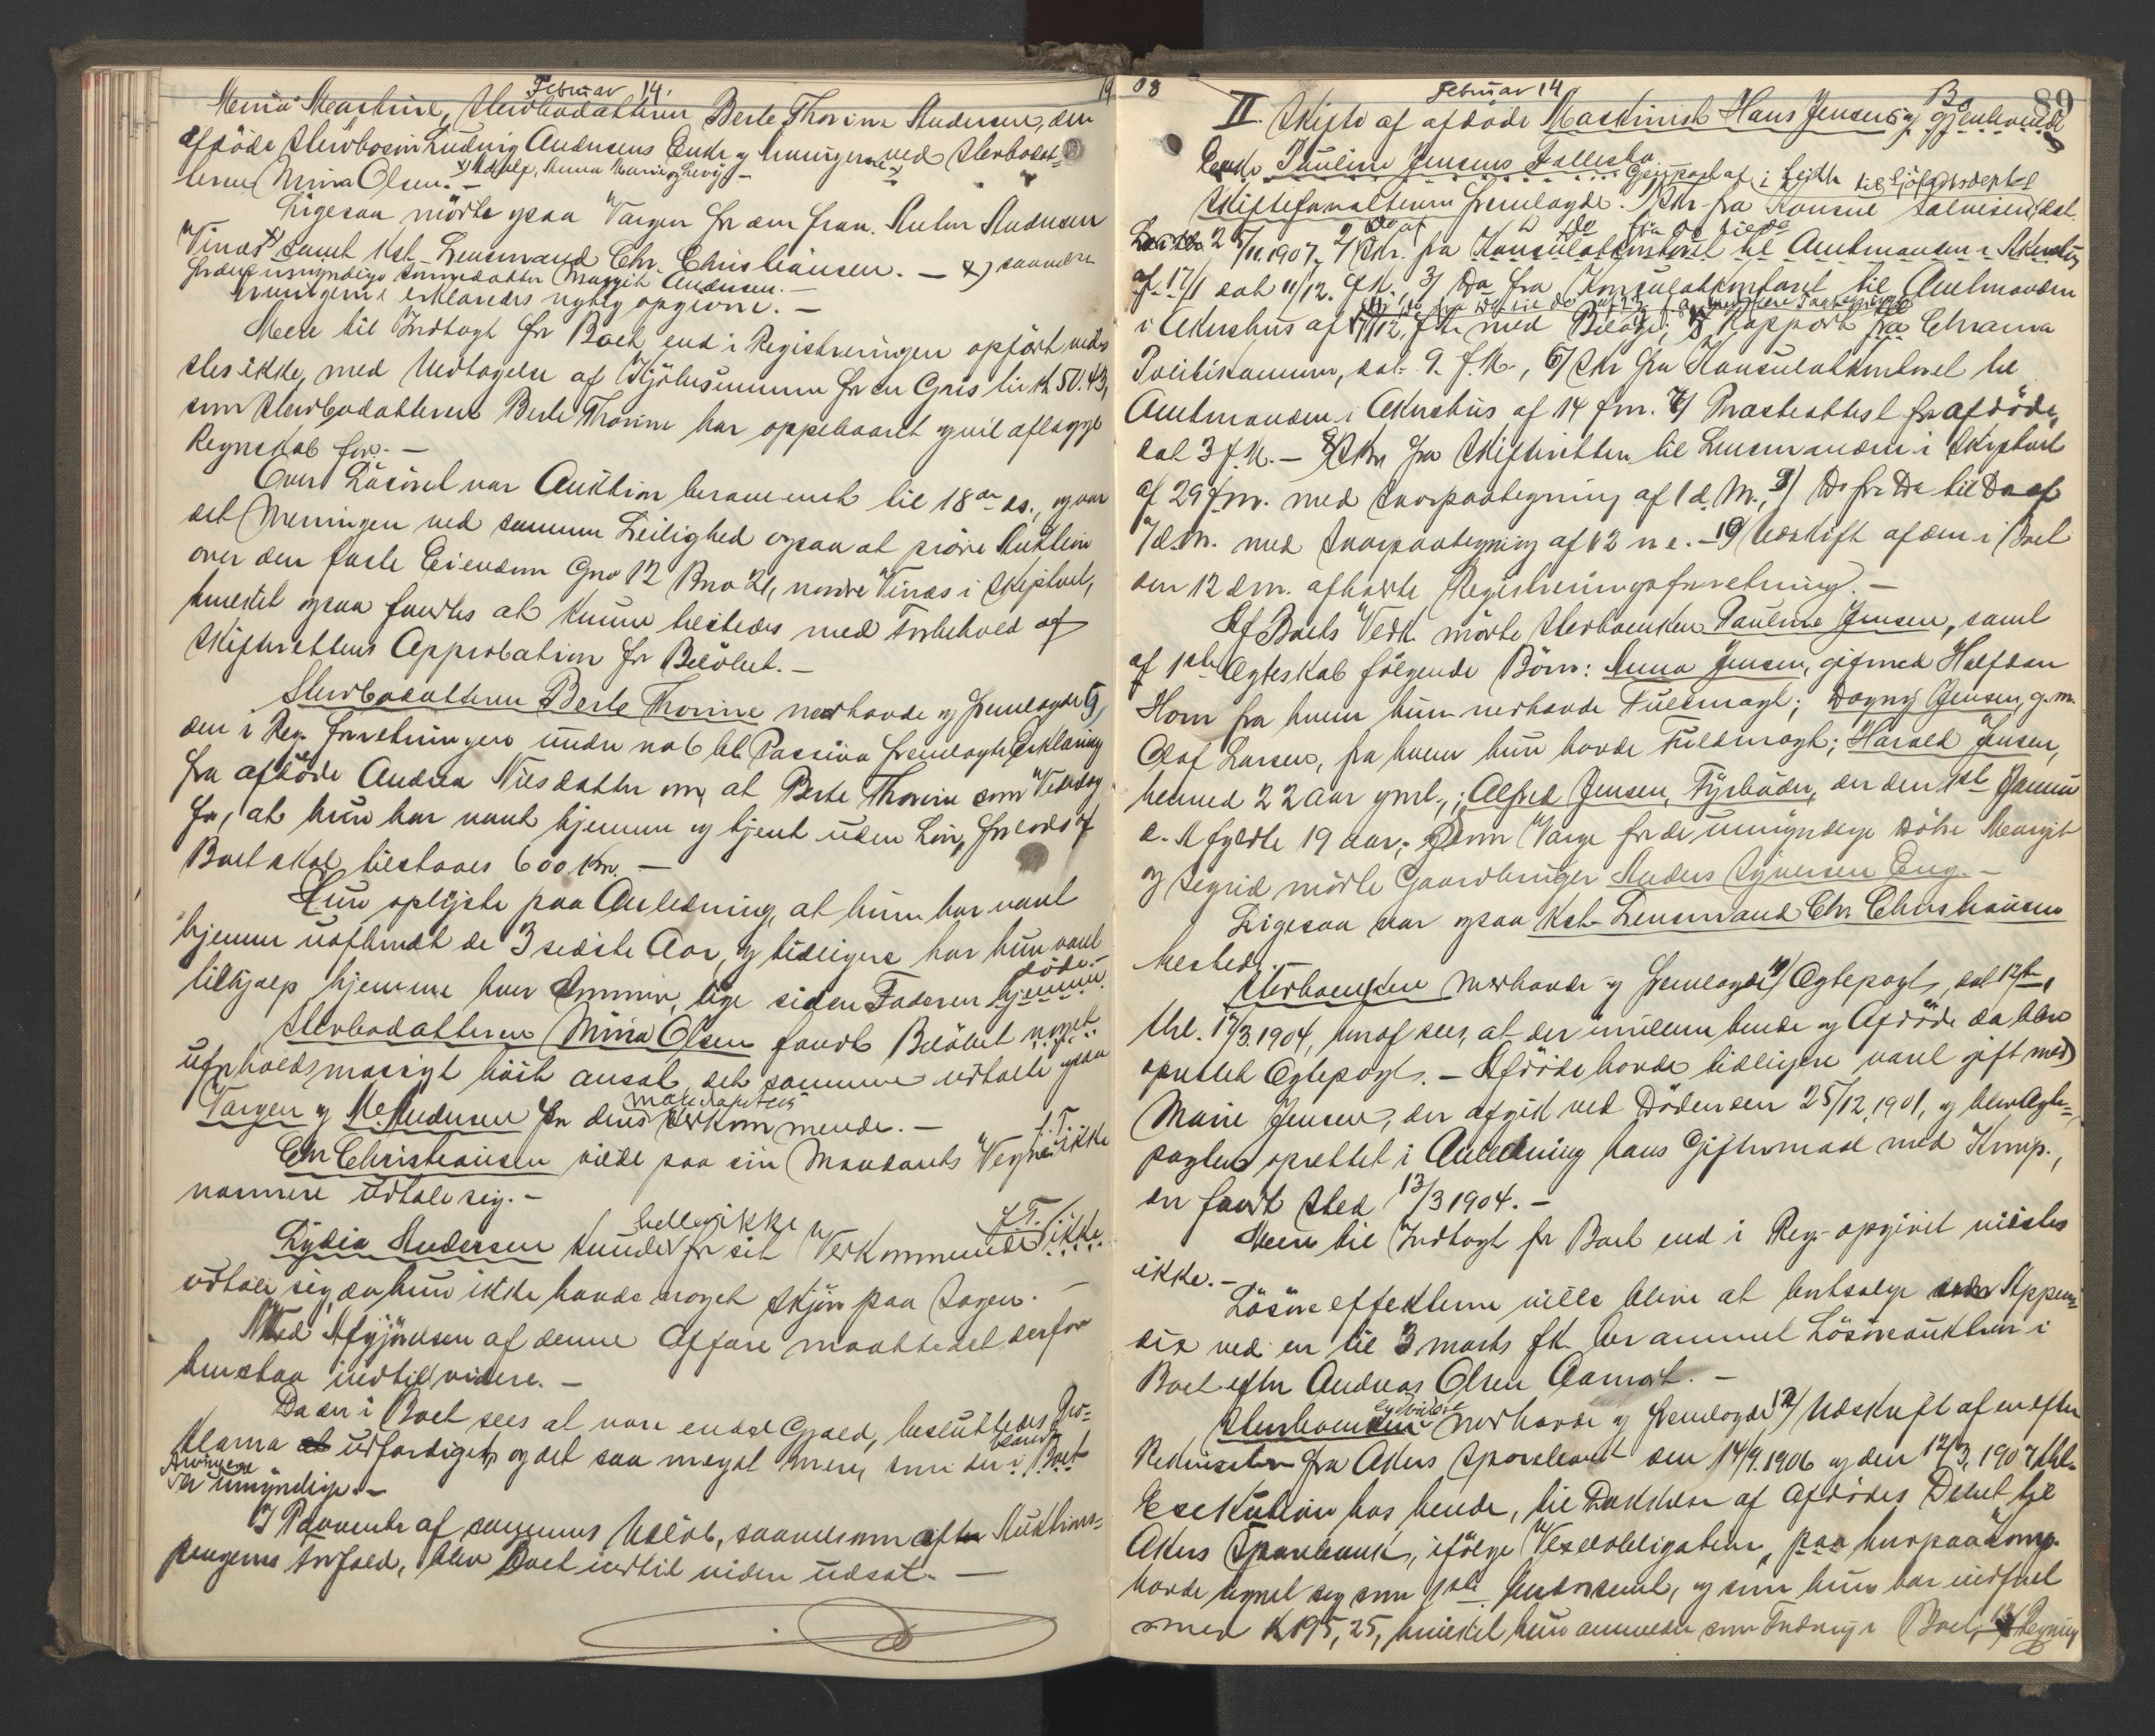 Februar 14. 19
Meastine, Sterbodatteren Berte Thorine Andersen, den
afdöde Sterbosön Ludvig Andersens Enke og ved Sterbodat-
teren Mina Olsen. - x) Adolf, Anna Marie og Levy -
Ligesaa mödte ogsaa Vargen for dem frav. Anton Andersen
Vinæs x) samt Kst. Lensmand Chr. Christiansen. - x) saavelsom
for den umyndige Sönnedatter Margit Andersen. -
Arvingerne erklæredes rigtig opgivne. -
Mere til Indtægt for Boet end i Registreringen opfört vid-
stes ikke, med Undtagelse af Kjöbesummen for en Gris til k 50.43,
som Sterbodatteren Berte Thorine har oppebaaret og vil aflægge
Regnskab for. -
Over Lösöret var Auktion berammet til 18de ds., og var
det Meningen ved samme Leilighed ogsaa at pröve Auktion
over den faste Eiendom Gno 12 Bno 21, nordre Vinæs i Skiptvet,
hvilket ogsaa fandtes at kunne tilstedes med Forbehold af
Skifterettens Approbation for Belöbet. -
Sterbodatteren Berte Thorine nærhavde og fremlagde G,
den i Reg. forretningen under no 6 bl. Passiva fremlagte Erklæring
fra afdöde Andrea Nilsdatter om, at Berte Thorine som Vederlag
for, at hun har vært hjemme og tjent uden Lön, forlods af
Boet skal tilstaaes 600 Kr. -
Hun oplyste paa Anledning, at hun har vært
hjemme uafbrudt de 3 sidste Aar, og tidligere har hun vært
tilhjælp hjemme hver Sommer, lige siden Faderen döde.
Sterbodatteren Mina Olsen fandt Belöbet noget
uforholdsmæssigt höit ansat, det samme udtalte ogsaa
Vargen og M. Andersen for deres Vedkommende. -
Chr Christiansen vilde paa sin Mandants Vegne f.T. ikke
nærmere udtale sig. -
Lydia Andersen kunde heller ikke for sit Vedkommende
udtale sig, da hun ikke havde noget Skjön paa Sagen. -
Med Afgjörelsen af denne Affære maatte det derfor
henstaa indtil videre. -
Da der i Boet sees at være endel Gjæld, besluttedes Pro-
klama udfærdiget, og det saa meget mere, som der i Boet
er umyndige. - blandt Arvingene
I Paavente af samme Udlöb, saavelsom efter Auktions-
pengenes Forfald, blev Boet indtil videre udsat. -
08 Februar 14 89
II. Skifte af afdöde Maskinist Hans Jensens og gjenlevende
Enke Pauline Jensens Fællesbo.
Skifteforvalteren fremlagde. 1) Skr. fra Konsul
25/11.1907, 2) Skr. fra Konsulatkontoret til Amtmanden i Akershus
af 17/1 dat 11/12. f.A. 3) Do fra Konsulatkontoret til Amtmanden
i Akershus af 17/12. f.A. med Bilage; Rapport fra Chrania
Politikammer, dat. 9. f.M., 6) Skr fra Konsulatkontoret til
Amtmanden i Akershus af 14 f.m. 7) Præsteattest for afdöde,
dat 3 f.M. - 8) Skr fra Skifteretten til Lensmanden i Skiptvet
af 29 f.m. med Svarpaategning af 1 d.M., 9) Do fra Do til Do af
7 d.m. med Svarpaategning af 12 n.e. - 10) Udskrift af den i Boet
den 12 d.m. afholdte Registreringsforretning. -
Af Boets Vedk. mödte Sterboenken Pauline Jensen, samt
af 1ste Ægteskab fölgende Börn: Anna Jensen, gift med Halfdan
Horn fra hvem hun nærhavde Fuldmagt; Dagny Jensen, g.m.
Olaf Larsen, fra hvem hun havde Fuldmagt; Harald Jensen,
henved 22 aar gml.; Alfred Jensen, Fyrböder, der den 1ste Januar
d.A fyldte 19 aar; Som Varge for de umyndige Dötre Margit
og Sigrid mödte Gaardbruger Anders Syversen Eng. -
Ligesaa var ogsaa Kst. Lensmand Chr. Christiansen
tilstede.
Sterboenken nærhavde og fremlagde 11) Ægtepagt, dat 12te,
thl. 17/3 1904, hvoraf sees, at der imellem hende og Afdöde da blev
oprettet Ægtepagt. - Afdöde havde tidligere været gift med
Marie Jensen, der afgik ved Döden den 25/12 1901, og blev Ægte-
pagten oprettet i Anledning hans Giftermaal med Komp.,
der fandt Sted 13/3 1904. -
Mere til Indtægt for Boet end i Reg. opgivet vidstes
ikke. -
Lösöreeffekterne ville blive at bortsælge som Appen-
dix ved en til 3 marts f.k. berammet Lösöreauktion i
Boet efter Andreas Olsen Aamodt. -
Sterboenken nærhavde og fremlagde 12) Udskrift af en efter
Rekvisition fra Akers Sparebank den 14/9.1906 og den 12/3. 1907 thl.
Exekution hos hende, til Dækkelse af afdödes Debet til
Akers Sparebank, ifölge Vexelobligation, paa hvorpaa Komp.
havde tegnet sig som 1ste Endossent, og som hun har indfriet
med k 195,25, hvilket hun anmelder som Fordring i Boet, Regning